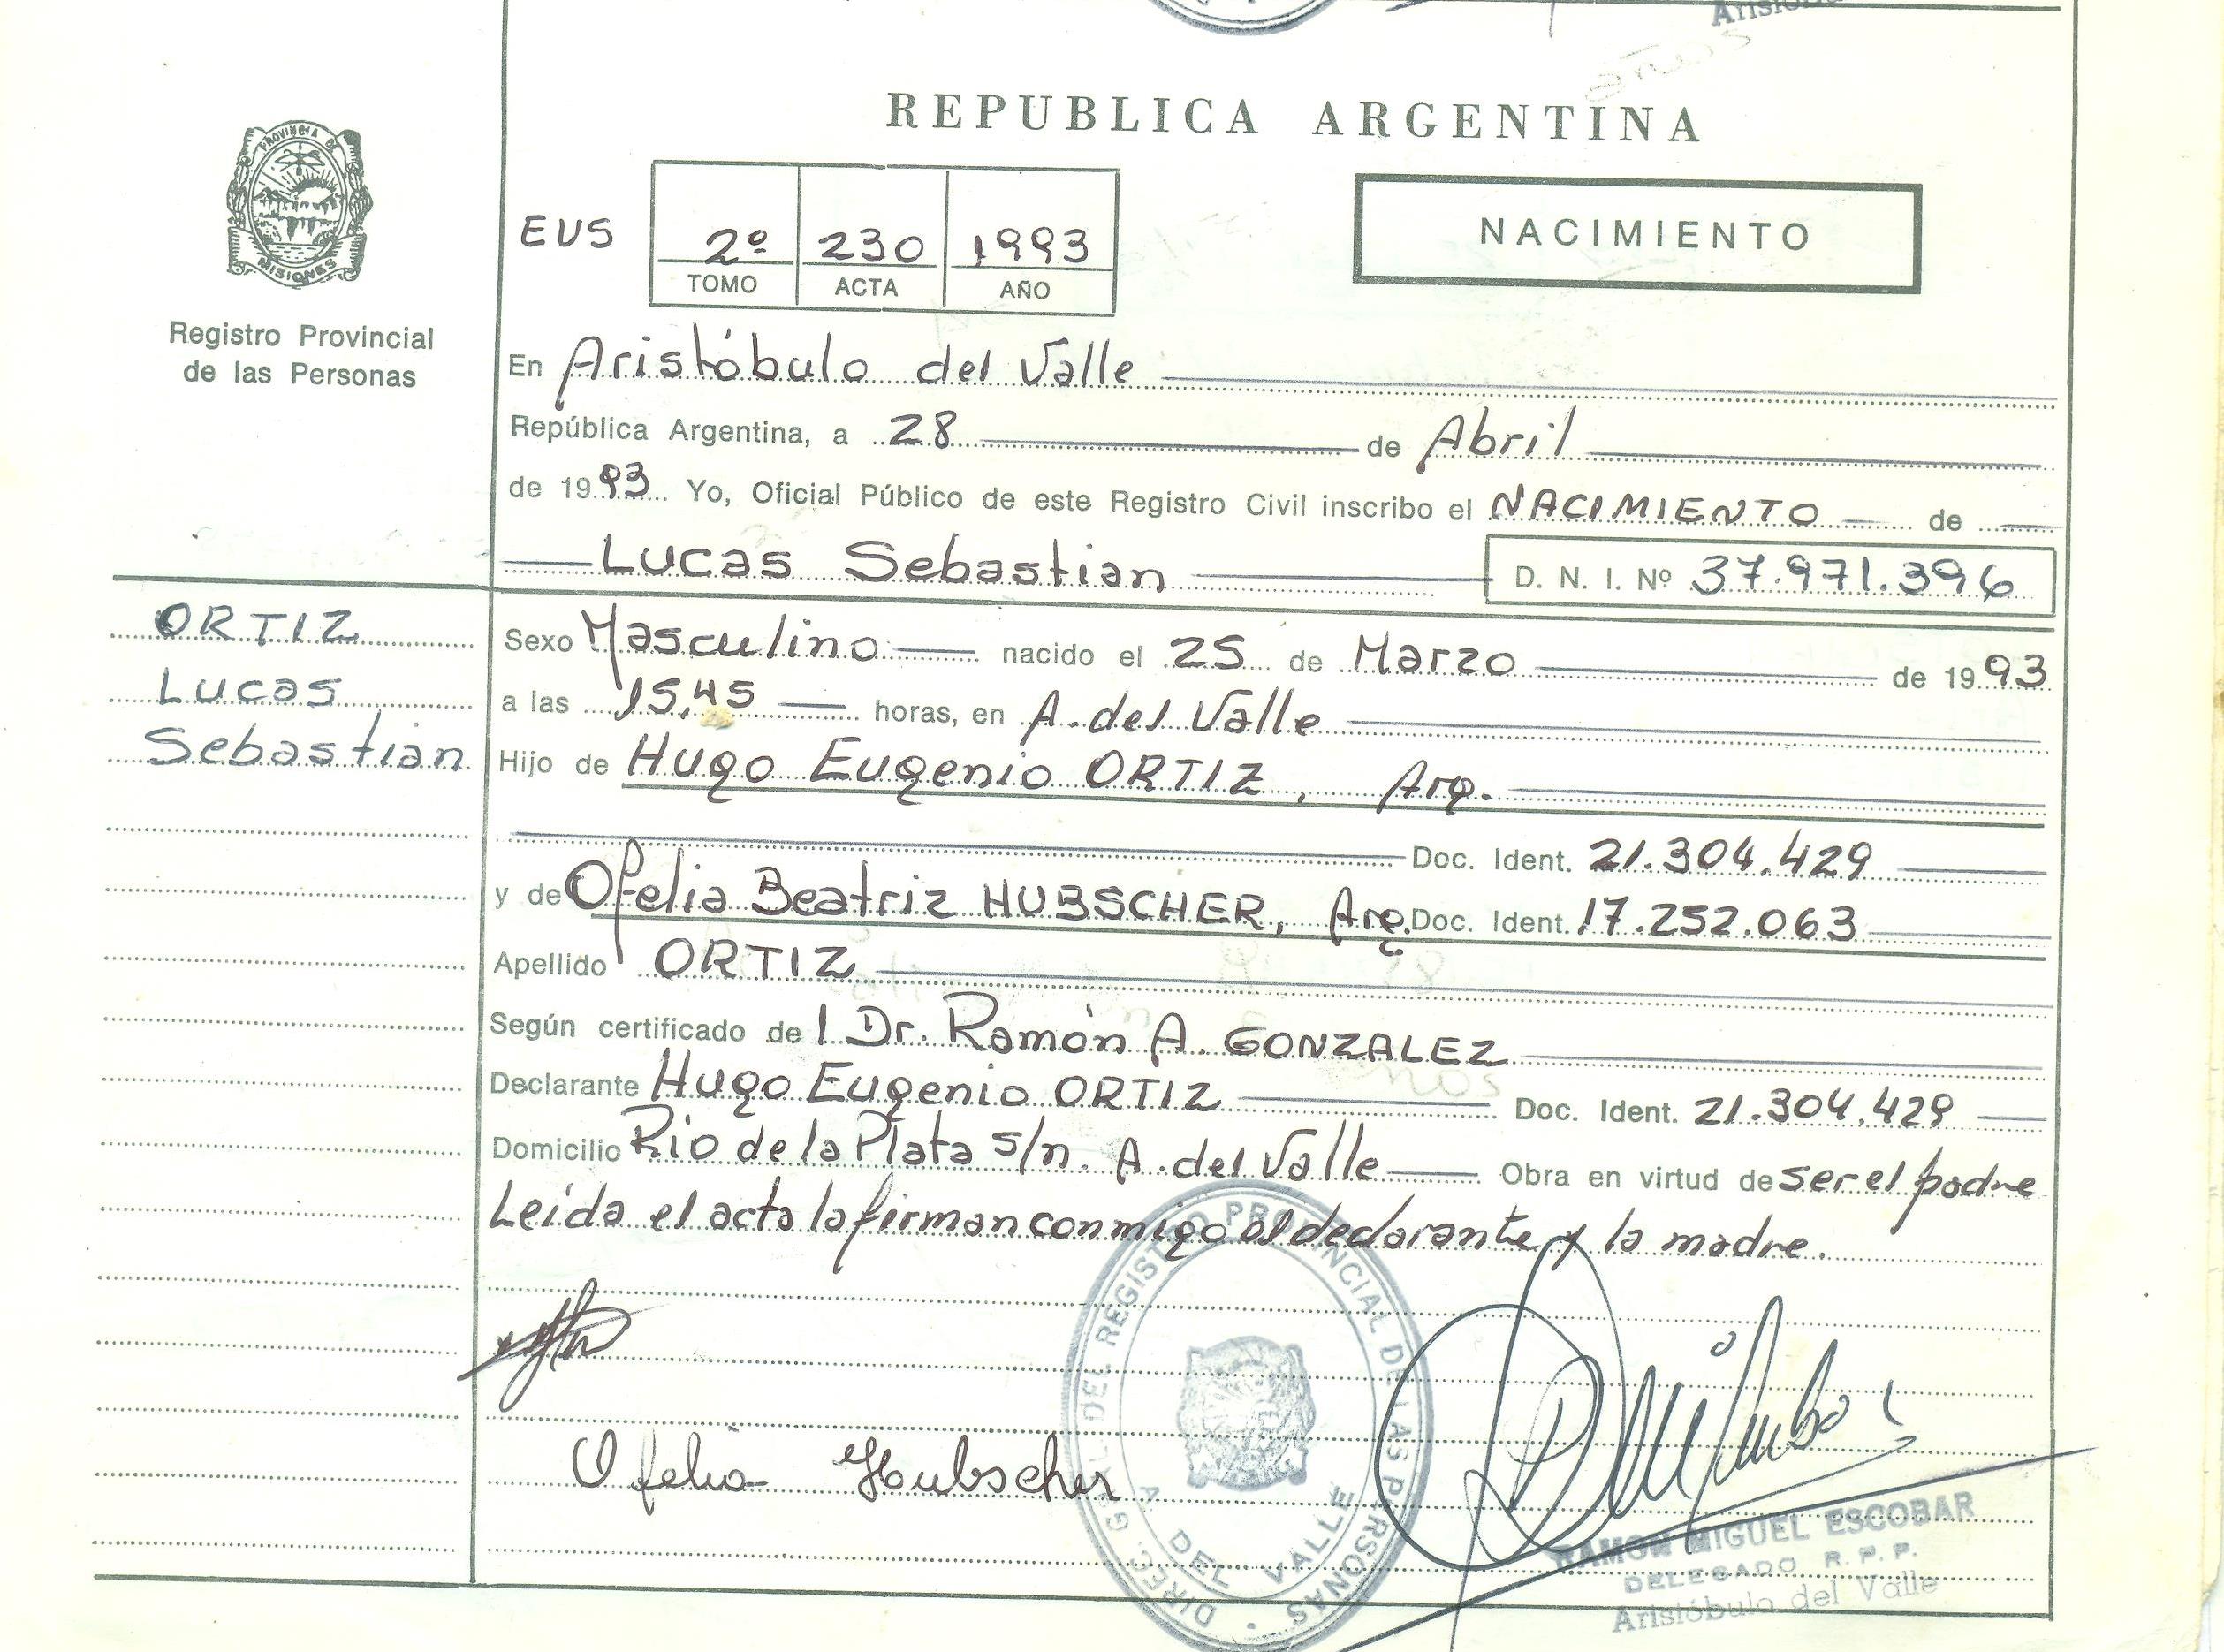 Aristó
REPUBLICA ARGENTINA
PROVINCIA DE
MISIONES
Registro Provincial
de las Personas
EVS
2º 230 1993
TOMO ACTA AÑO
NACIMIENTO
En Aristóbulo del Valle
República Argentina, a 28 de Abril
de 1993 Yo, Oficial Público de este Registro Civil inscribo el NACIMIENTO de
Lucas Sebastian D. N. I. Nº 37.971.396
ORTIZ
Lucas
Sebastian
Sexo Masculino nacido el 25 de Marzo de 1993
a las 15,45 horas, en A. del Valle
Hijo de Hugo Eugenio ORTIZ, Arg.
Doc. Ident. 21.304.429
y de Ofelia Beatriz HUBSCHER, Arg. Doc. Ident. 17.252.063
Apellido ORTIZ
Según certificado de l Dr. Ramón A. GONZALEZ
Declarante Hugo Eugenio ORTIZ Doc. Ident. 21.304.429
Domicilio Rio de la Plata s/n. A. del Valle Obra en virtud de ser el padre
Leida el acta la firman conmigo el declarante y la madre.
Ofelia Hubscher
DIREC. GRAL. DEL REGISTRO PROVINCIAL DE LAS PERSONAS
A. DEL VALLE
RAMON MIGUEL ESCOBAR
DELEGADO R. P. P.
Aristóbulo del Valle